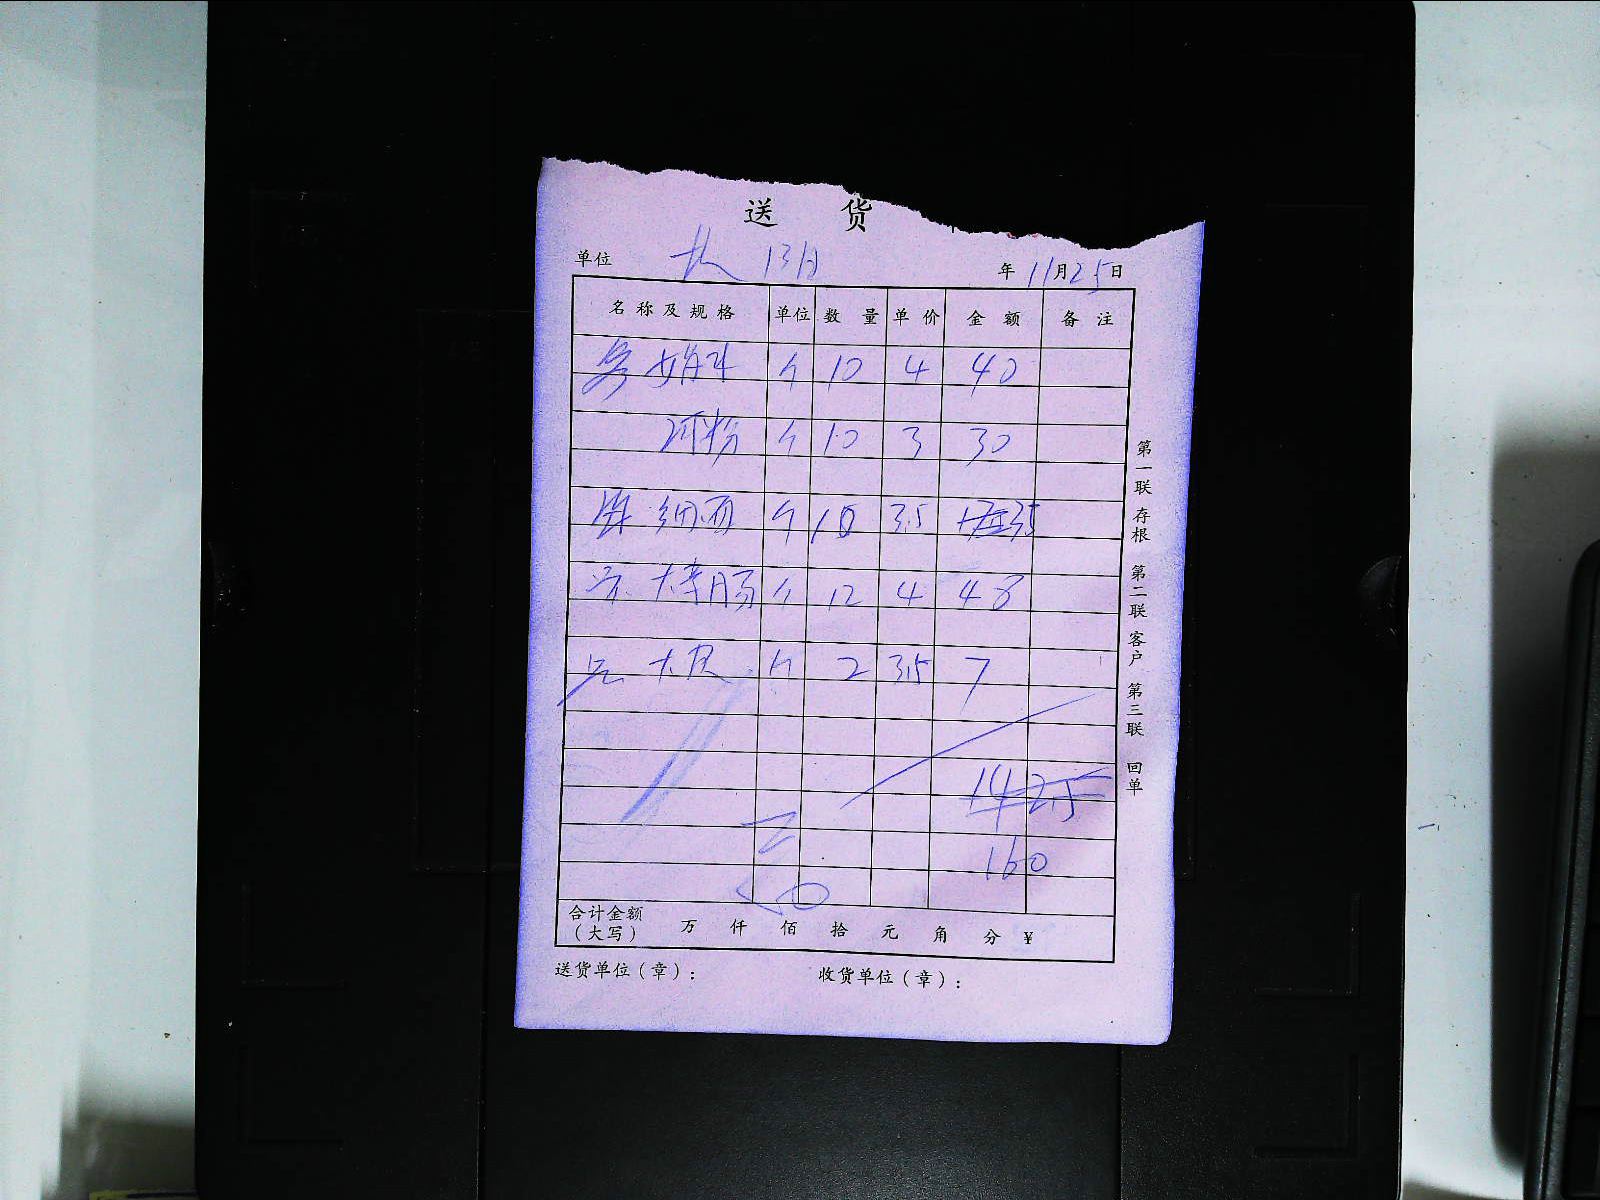 送 货
单位 13日 年 11月25日
名称及规格 单位 数量 单价 金额 备注
个 10 4 40
河粉 个 10 3 30
细面 个 10 3.5 35
大烤肠 个 12 4 48
个 2 3.5 7
160
合计金额（大写） 万 仟 佰 拾 元 角 分 ¥
送货单位（章）： 收货单位（章）：
第一联 存根 第二联 客户 第三联 回单